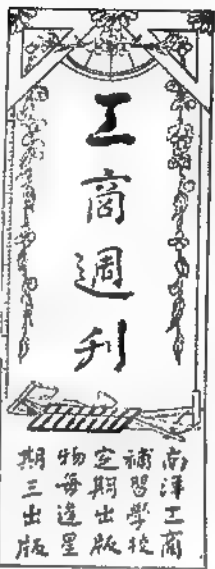 工商週刊
南洋工商
補習學校
定期出版
物每逢星
期三出版